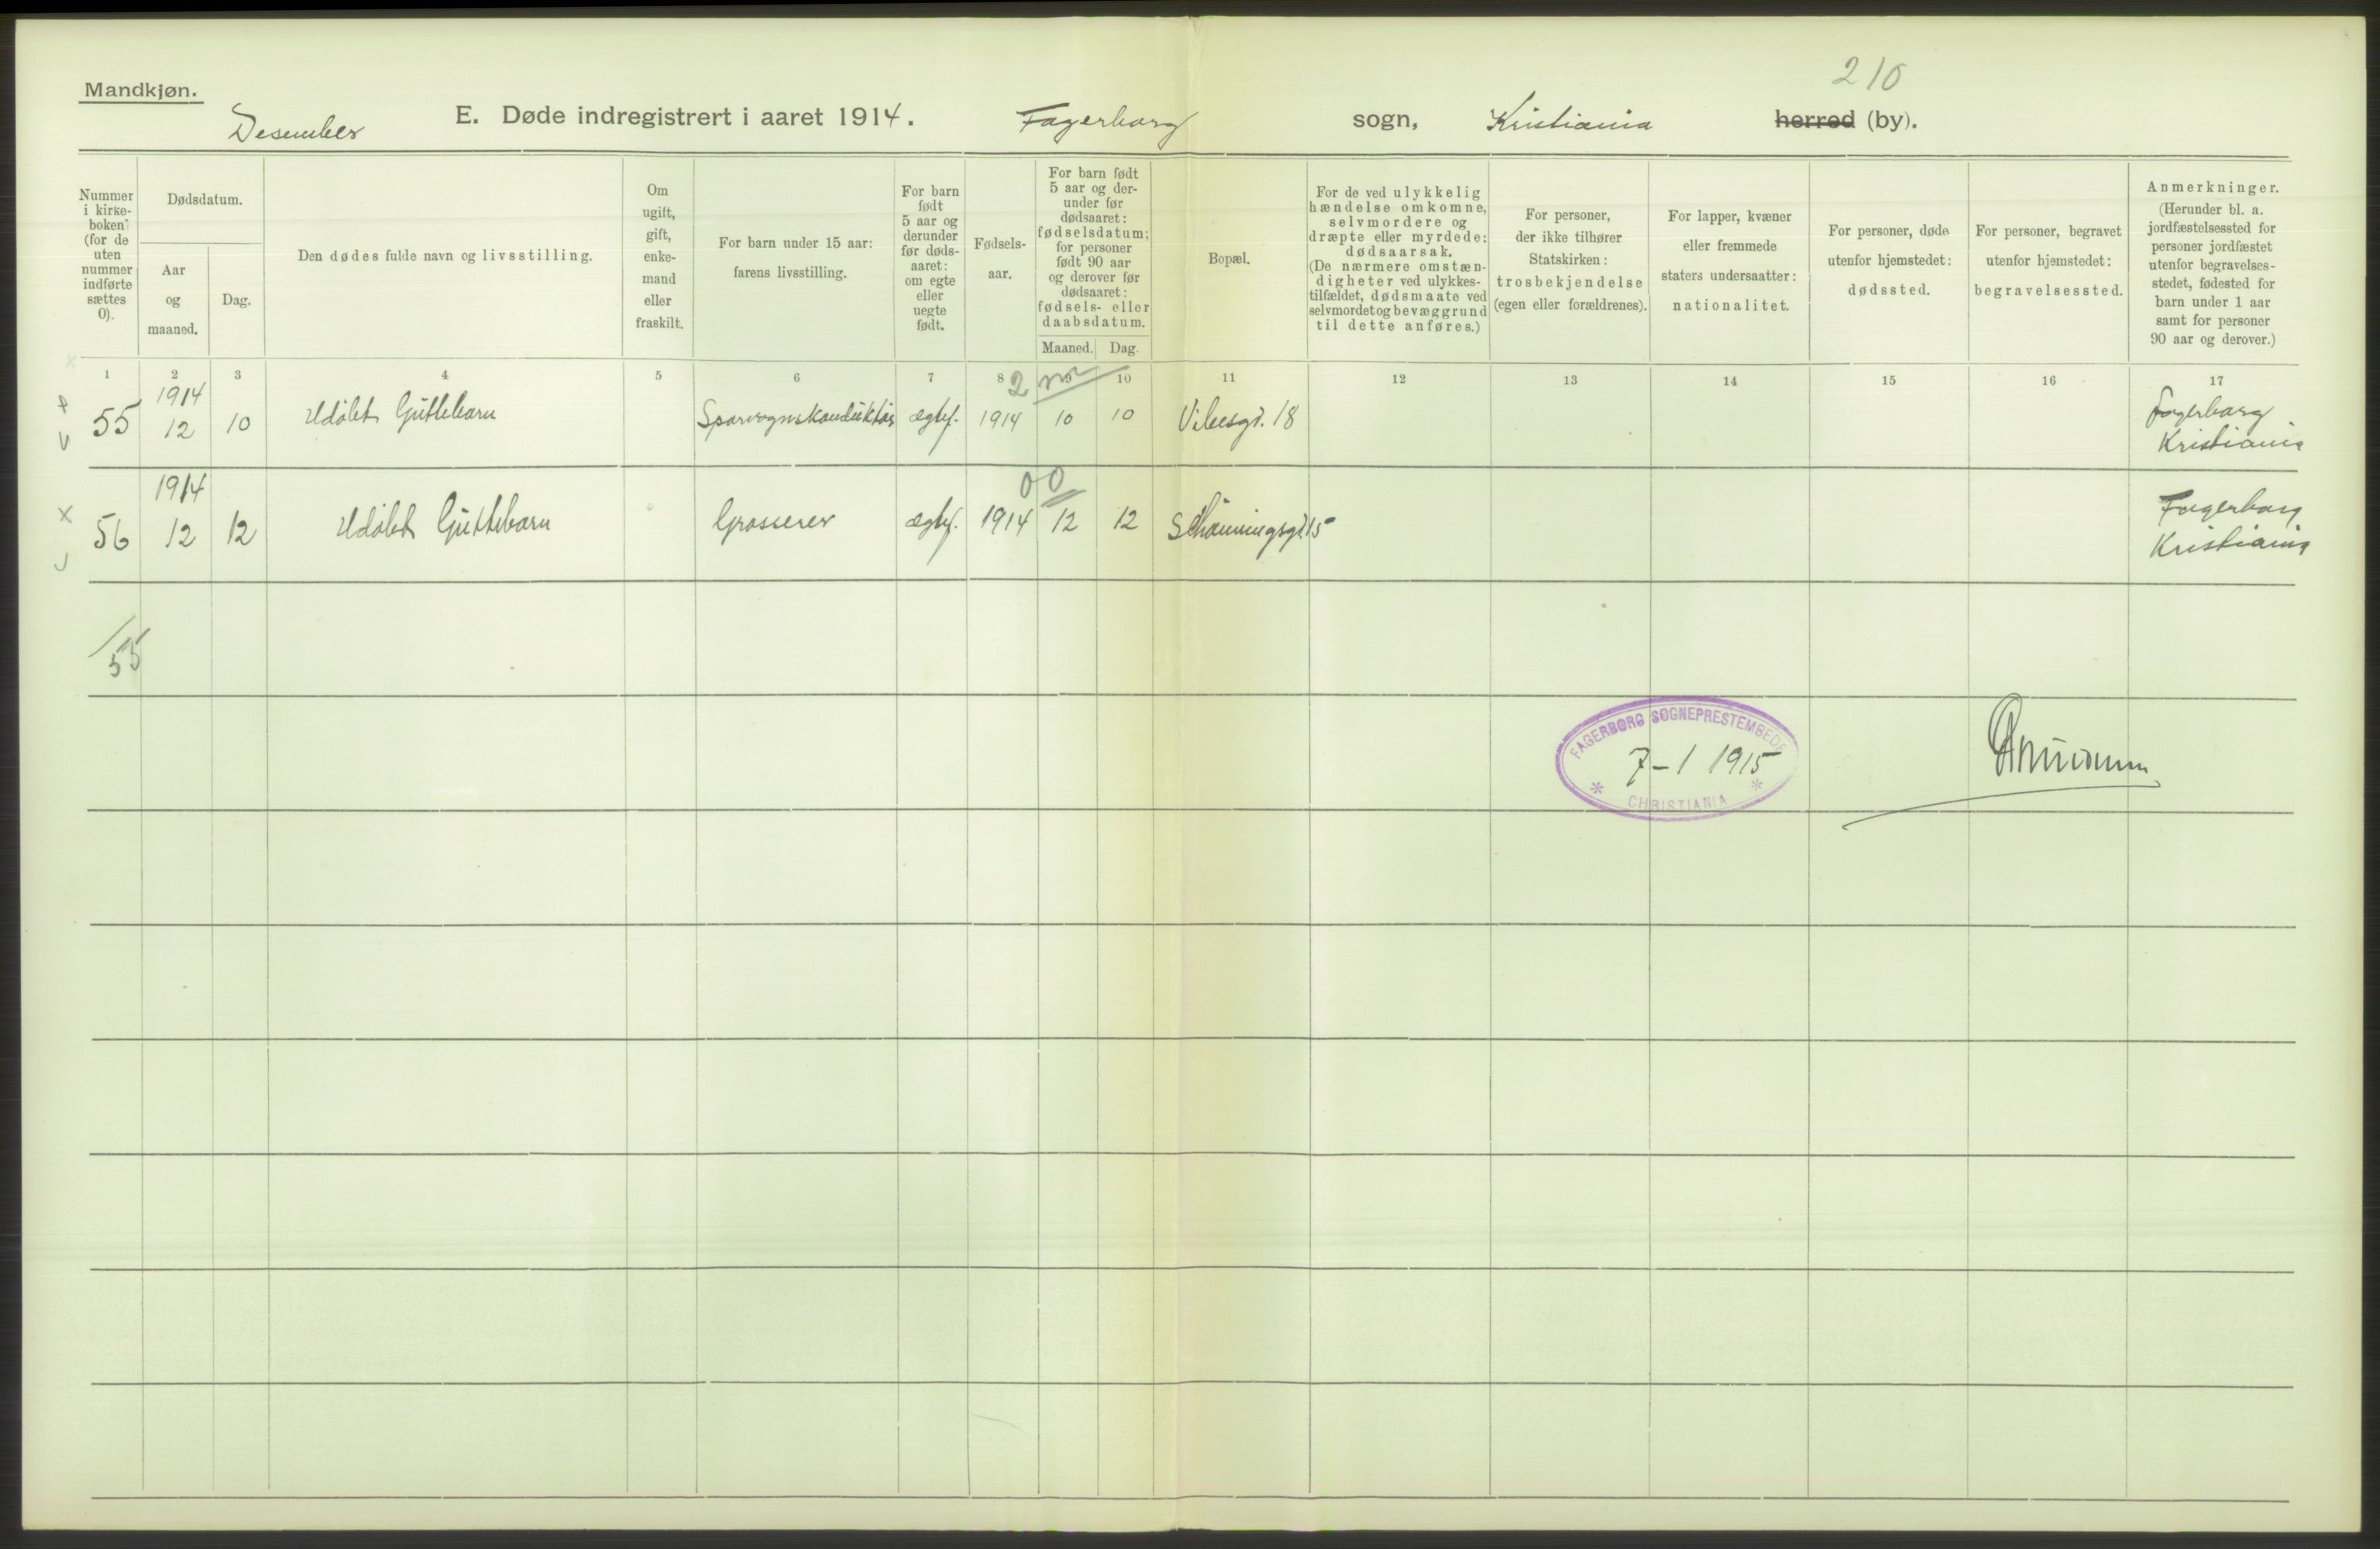 210
Mandkjøn.
Desember E. Døde indregistrert i aaret 1914. Fagerborg sogn, Kristiania herred (by).
Nummer i kirke- boken (for de uten nummer indførte sættes 0).
Dødsdatum.
Aar og maaned.
Dag.
Den dødes fulde navn og livsstilling.
Om ugift, gift, enke- mand eller fraskilt.
For barn under 15 aar: farens livsstilling.
For barn født 5 aar og derunder før døds- aaret: om egte eller uegte født.
Fødsels- aar.
For barn født 5 aar og der- under før dødsaaret: fødselsdatum; for personer født 90 aar og derover før dødsaaret: fødsels- eller daabsdatum.
Maaned. Dag.
Bopæl.
For de ved ulykkelig hændelse omkomne, selvmordere og dræpte eller myrdede: dødsaarsak. (De nærmere omstæn- digheter ved ulykkes- tilfældet, dødsmaate ved selvmordet og bevæggrund til dette anføres.)
For personer, der ikke tilhører Statskirken: trosbekjendelse (egen eller forældrenes).
For lapper, kvæner eller fremmede staters undersaatter: nationalitet.
For personer, døde utenfor hjemstedet: dødssted.
For personer, begravet utenfor hjemstedet: begravelsessted.
Anmerkninger. (Herunder bl. a. jordfæstelsessted for personer jordfæstet utenfor begravelses- stedet, fødested for barn under 1 aar samt for personer 90 aar og derover.)
1 2 3 4 5 6 7 8 9 10 11 12 13 14 15 16 17
2
55 1914 12 10 Udøbt Guttebarn Sporvognskonduktør ægtef. 1914 10 10 Vibesgt. 18 Fagerborg Kristiania
00
56 1914 12 12 Udøbt Guttebarn Grosserer ægtef. 1914 12 12 Schøningsgt. 15 Fagerborg Kristiania
55
FAGERBORG SOGNEPRESTEMBEDE
7-1 1915
CHRISTIANIA